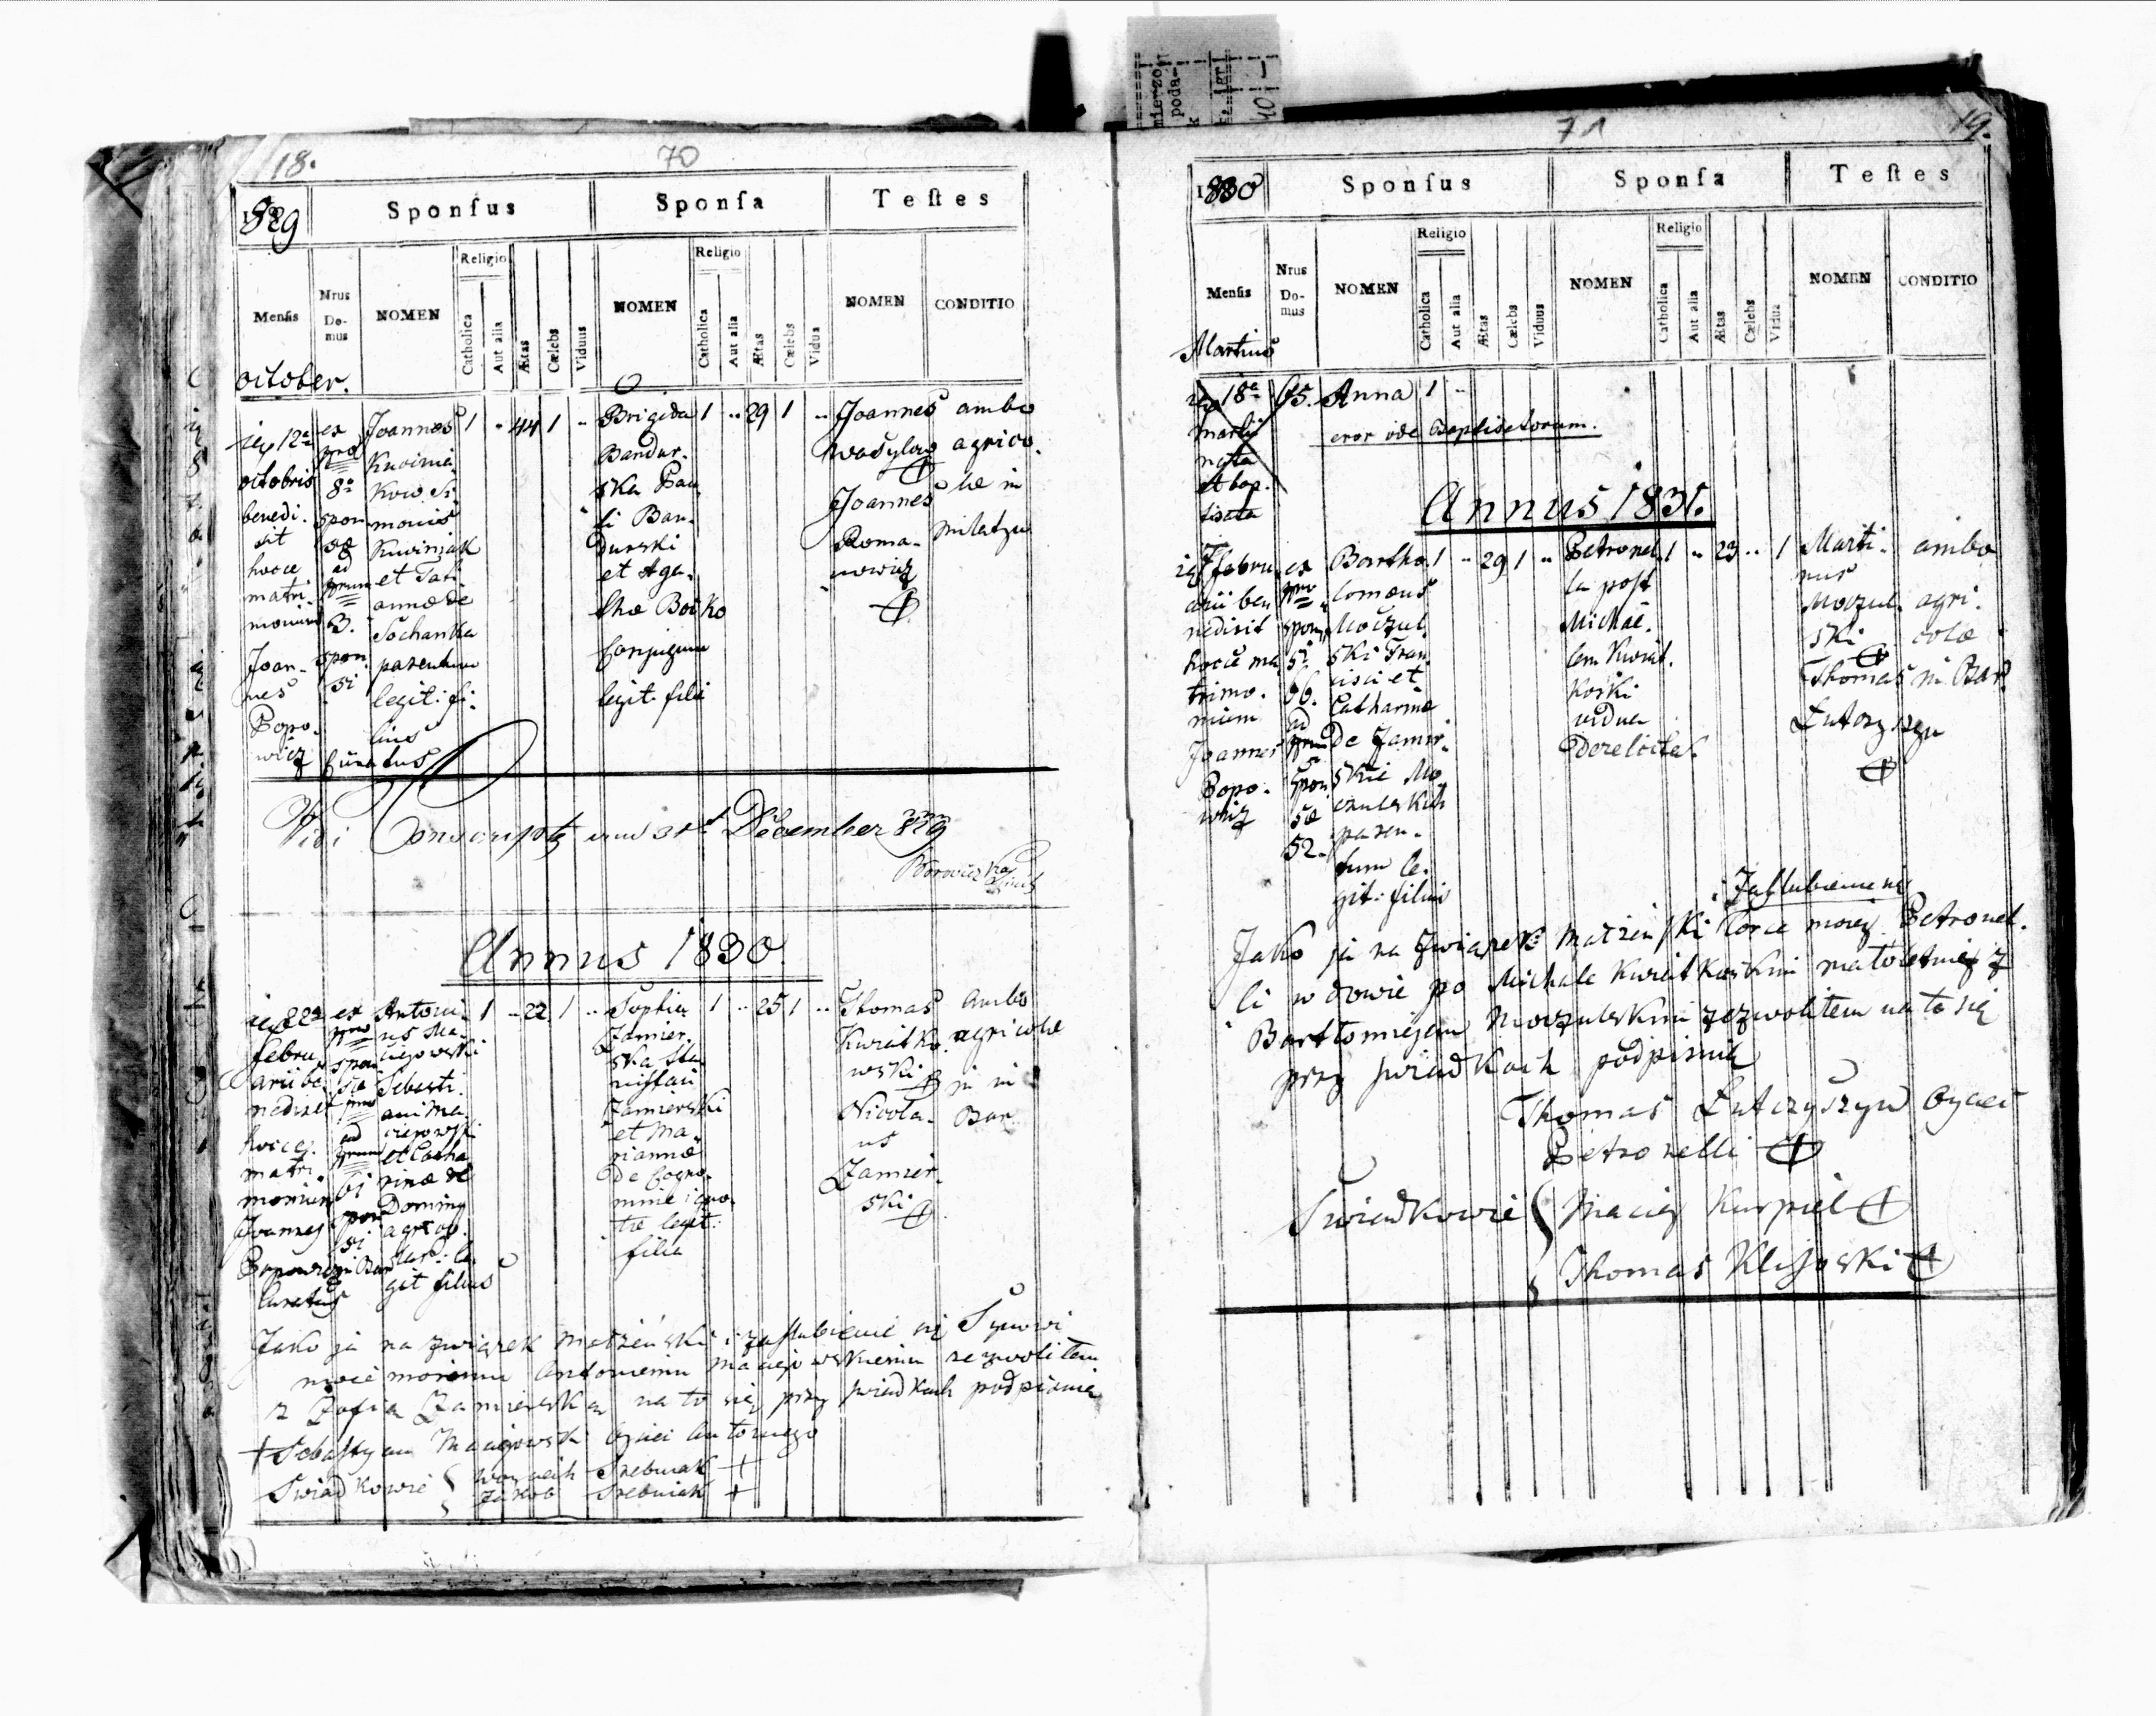 18.
70
1829
Sponſus
Sponſa
Teſtes
Menſis
Nrus Do-mus
NOMEN
Religio
Catholica
Aut alia
Ætas
Cælebs
Viduus
NOMEN
Religio
Catholica
Aut alia
Ætas
Cælebs
Vidua
NOMEN
CONDITIO
october.
12a
octobris
benedi.
xit
hocce
matri.
monium
Joan-
nes
Popo-
wicz
ex
8o
spon
ad
3.
spon.
si
Joannes 1 44 1
Kuvinia
kow. Si
monis
Kuviniak
et Tati.
annæ de
Sochanka
parentum
legit: fi.
lius
curatus
Brigida 1 .. 29 1 ..
Bandur.
ska Pau
li Ban
durski
et Aga.
thæ Boiko
conjugum
legit. filia
Joannes
Wasylow
Joannes
Roma-
nowicz
ambo
agrico.
læ in
miletyn
Vidi Conscript 31 December 829
Annus 1830.
22a
febru
arii be.
nedixit
hocce
matri
monium
Joannes
Popowicz
Curatus
ex
spon
ad
61
spon
si
Antoni. 1 .. 22 1 ..
us Ma.
ciejowski
Sebasti.
ani Ma.
ciejowski
et Catha
rinæ de
Doming
agricol.
git filius
Sophia 1 .. 25 1 ..
Zamier.
ska Sta
nislai
Zamierski
et Ma.
riannæ
de cogno.
mine igno.
tæ legit:
filia
Thomas
Kwiatko
wski
Nicola-
us
Zamier.
ski
ambo
agricolæ
in
Bar
Jako ja na związek małżeński i zaslubienie się Synowi
moiemu Antoniemu Maciejowskiemu zezwolitem
z Zofia Zamierska na to się przy swiadkach podpisuię
+ Sebastyan Maciejowski Oyciec Antoniego
Swiadkowie { Woyciech Srebniak +
Jakob Srebniak +
71
19.
1830
Sponſus
Sponſa
Teſtes
Menſis
Nrus Do-mus
NOMEN
Religio
Catholica
Aut alia
Ætas
Cælebs
Viduus
NOMEN
Religio
Catholica
Aut alia
Ætas
Cælebs
Vidua
NOMEN
CONDITIO
Martius
18a 65. Anna 1 ..
martii
nata
et bap.
tisata
error vide Baptisatorum.
Annus 1831.
7 febru
arii be
nedixit
hocce ma
trimo.
nium
Joannes
Popo.
wicz
ex
spon
si
56.
ad
spon
sæ
52.
Bartho. 1 .. 29 1 ..
lomæus
Moczul.
ski Fran
cisci et
Catharinæ
de Zamir.
skie Mo
czulskich
paren.
tum le.
git: filius
Petronel. 1 .. 23 .. 1
la post
Michae.
lem Kwiat.
koski
vidua
derelicta.
Marti.
nus
Moczul.
ski
Thomas
Lutczyszyn
ambo
agri.
colæ
in Bar.
i Zaslubienie się
Jako ja na związek małżeński Corce moiey Petronel.
li wdowie po Michale Kwiatkoskim małoletniey z
Bartłomiejem Moczulskim zezwolitem na to się
przy swiadkach podpisuię
Thomas Lutczyszyn Oyciec
Petronelli
Swiadkowie { Maciey Kurpiel
Thomas Klisoski